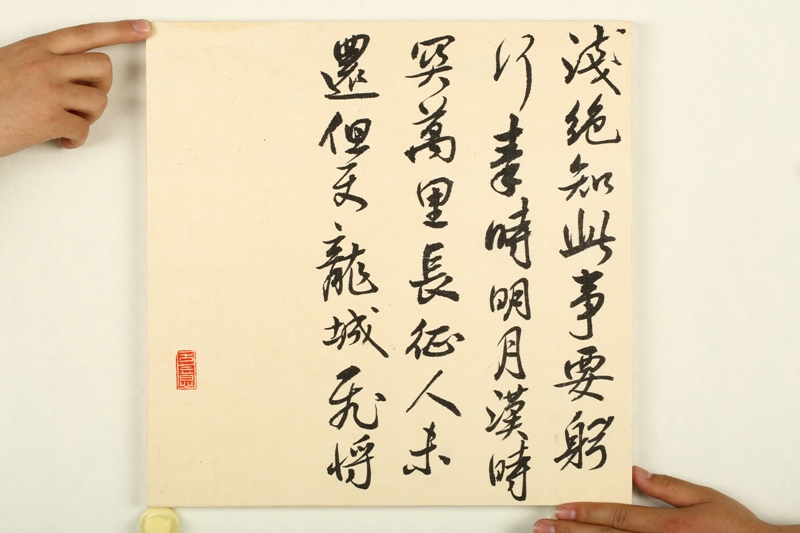 淺絕知此事要躬
行秦時明月漢時
関萬里長征人未
還但使龍城飛将